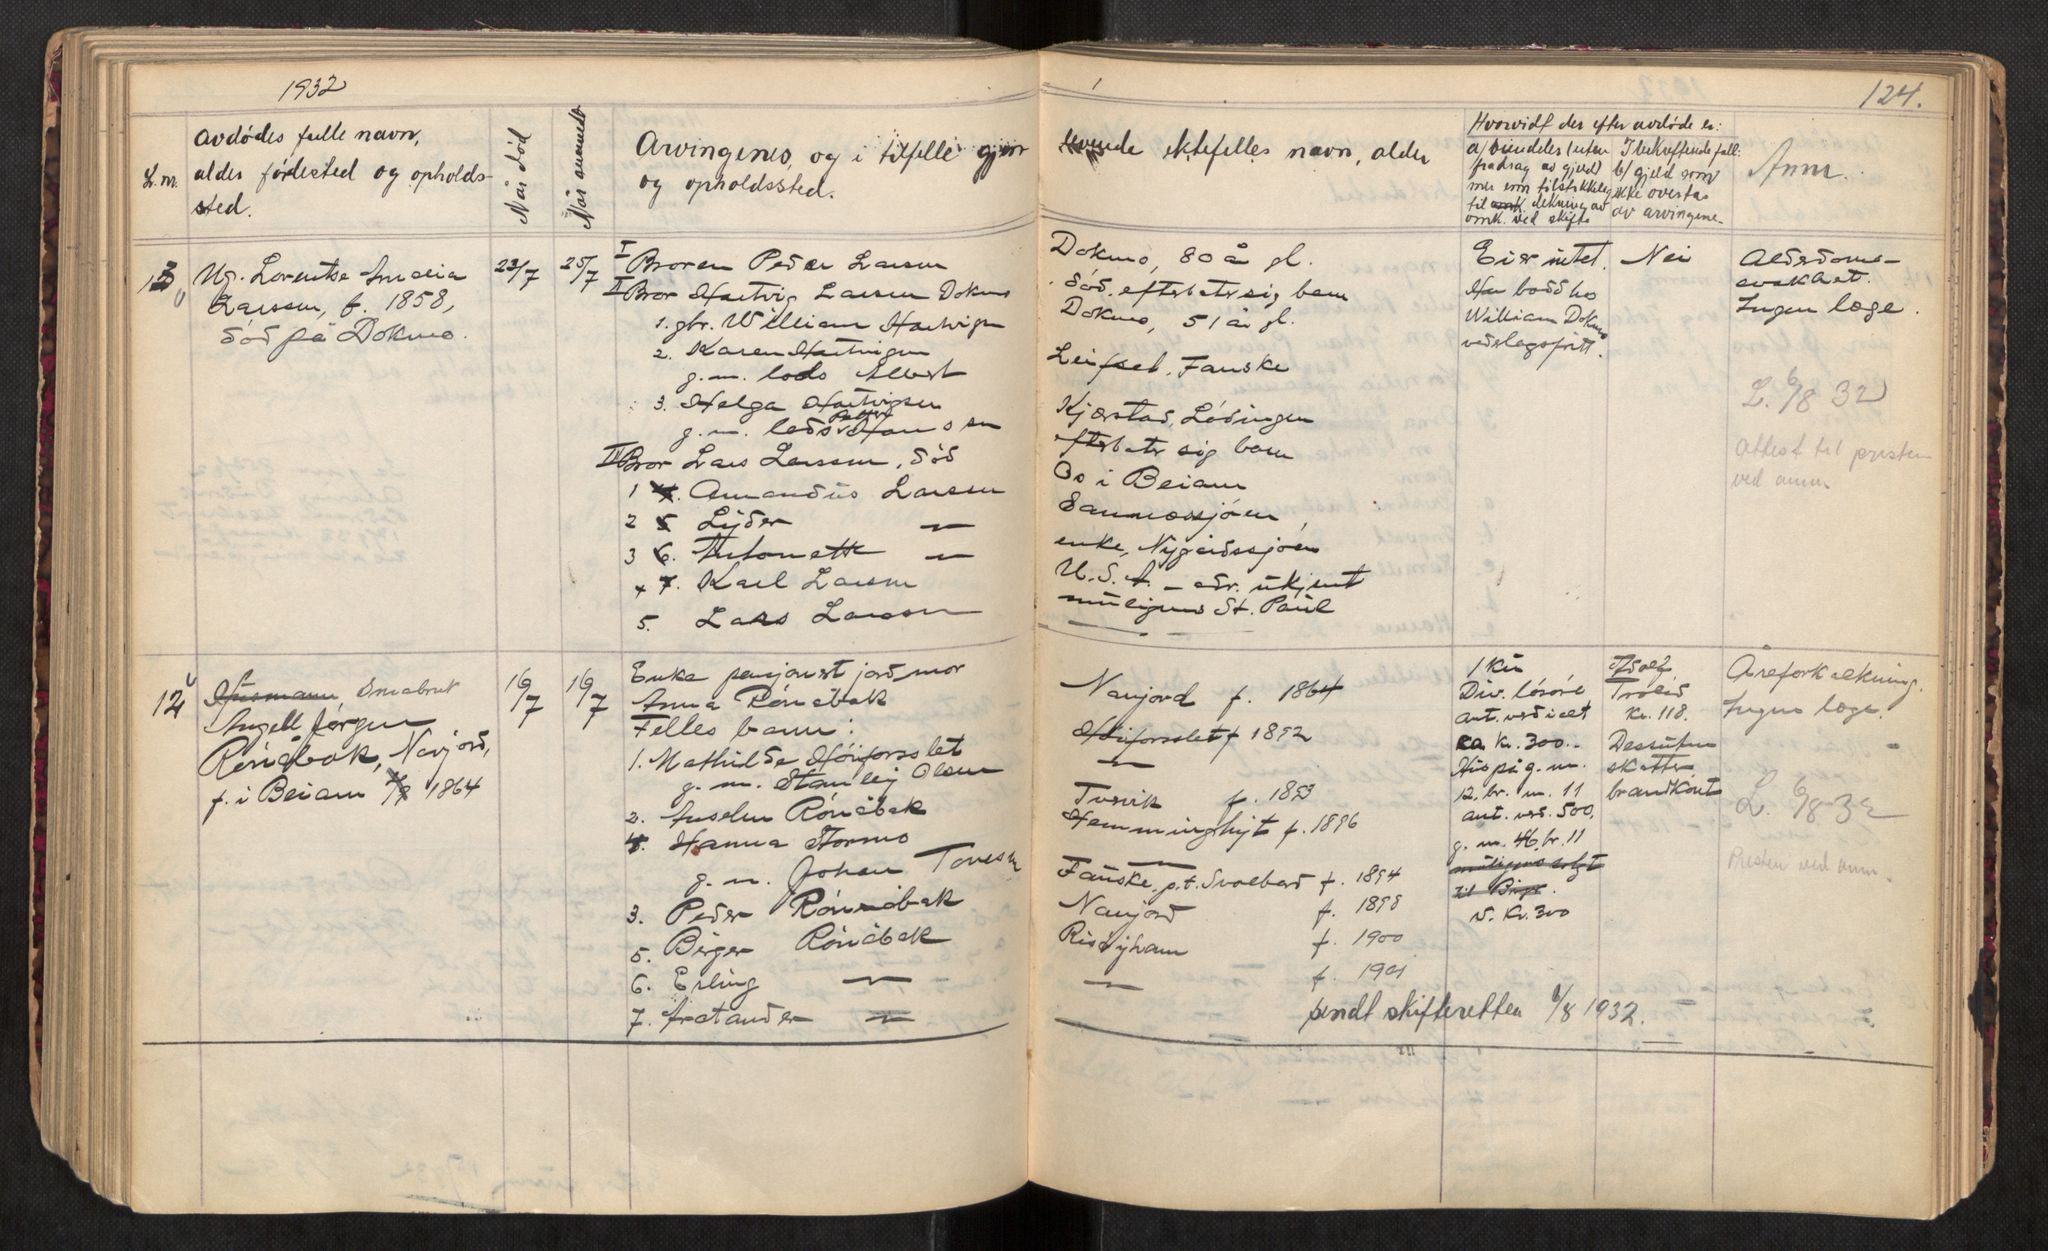 1932
124.
L.nr.
Avdødes fulle navn,
alder fødested og opholds-
sted.
Når død
Når anmeldt
Arvingenes, og i tilfelle gjen
levende ektefelles navn, alder
og opholdssted.
Hvorvidt der efter avdøde er:
a/ Eiendeler uten
fradrag av gjeld
mer enn tilstrekkelig
til omk. dekning av
omk. ved skifte
I bekreftende fall:
b/ gjeld som
ikke overtas
av arvingene.
Anm.
13
Ug. Lorentse Amalia
Larsen, f. 1858,
død på Dokmo.
23/7
25/7
I Broren Peder Larsen
II Bror Hartvig Larsen Dokmo
1. gbr. William Hartvigsen
2. Karen Hartvigsen
g.m. lods Albert
3. Helga Hartvigsen
g.m. lods Peder Hansen
III Bror Lars Larsen, død
1 4. Amandus Larsen
2 5 Lyder —
3 6. Antonette —
4 7. Karl Larsen
5. Lars Larsen
Dokmo, 80 år gl.
død, efterlater sig barn
Dokmo, 51 år gl.
Leifset, Fauske
Kjærstad, Lødingen
efterlater sig barn
Os i Beiarn
Sannessjøen,
enke, Nygårdssjøen
U.S.A. – adr. ukjent
muligens St. Paul
Eier intet.
Har bodd hos
William Dokmo
vederlagsfritt.
Nei
Alderdoms-
svakhet.
Ingen læge.
L. 6/8 32
Attest til presten
ved anm.
12
Husmann Småbruk
Angell Jørgen
Rønåbak, Navjord,
f. i Beiarn 1864
16/7
16/7
Enke pensjonert jordmor
Anna Rønåbak
Felles barn:
1. Mathilde Høiforsslet
g.m. Stanley Olsen
2. Anselm Rønåbak
4. Hanna Stormo
g.m. Johan
3. Peder Rønåbak
5. Birger Rønåbak
6. Erling —
7. —
Navjord f. 1864
Høiforsslet f 1892
—
Tvervik f. 1893
Hemminghyt f. 1896
—
Fauske, p.t. Svalbard f. 1894
Navjord f. 1898
f. 1900
— f. 1901
sendt skifteretten 6/8 1932.
1 ku
Div. løsøre
ant. verdi alt
ca kr. 300.-
Hus på g.nr.
12, br. nr. 11
ant. verd. 500,
g. nr. 46, br. 11
muligens solgt
til Birger.
v. kr. 300
Adolf
kr. 118.
Dessuten
skatter
brandkont
Åreforkalkning.
Ingen læge.
L. 6/8 32
Presten ved anm.